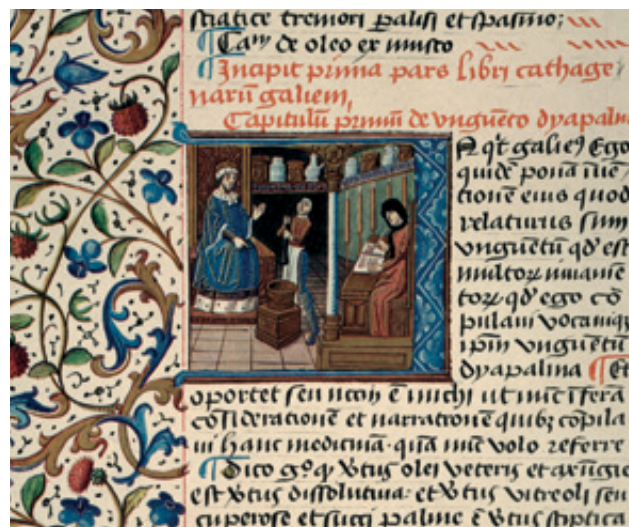 sciatice tremori palisi et spasmo;
Cam de oleo ex musto
Incipit prima pars libri cathage
narū galieni,
Capitulū primū de vnguēto dyapalma
qt galien) Ego
quidē ponā iuē
tionē eius quod
relaturus sum
vnguētū qd est
multoꝝ iuuamē
toꝝ qd ego cō
pulaui vocauiqꝫ
ipm vnguētū
dyapalina Et
oportet seu ē michi ut īferā
cōsideratione et narratione quibꝫ cōpila
ui hanc medicinā. quā nūc volo referre
Dico gͦ. qͥ v̾tus olei veteris et axūgie
est v̾tus dissolutiua: et v̾tus vitreoli seu
cuperose et succi palme ē v̾tus stiptica